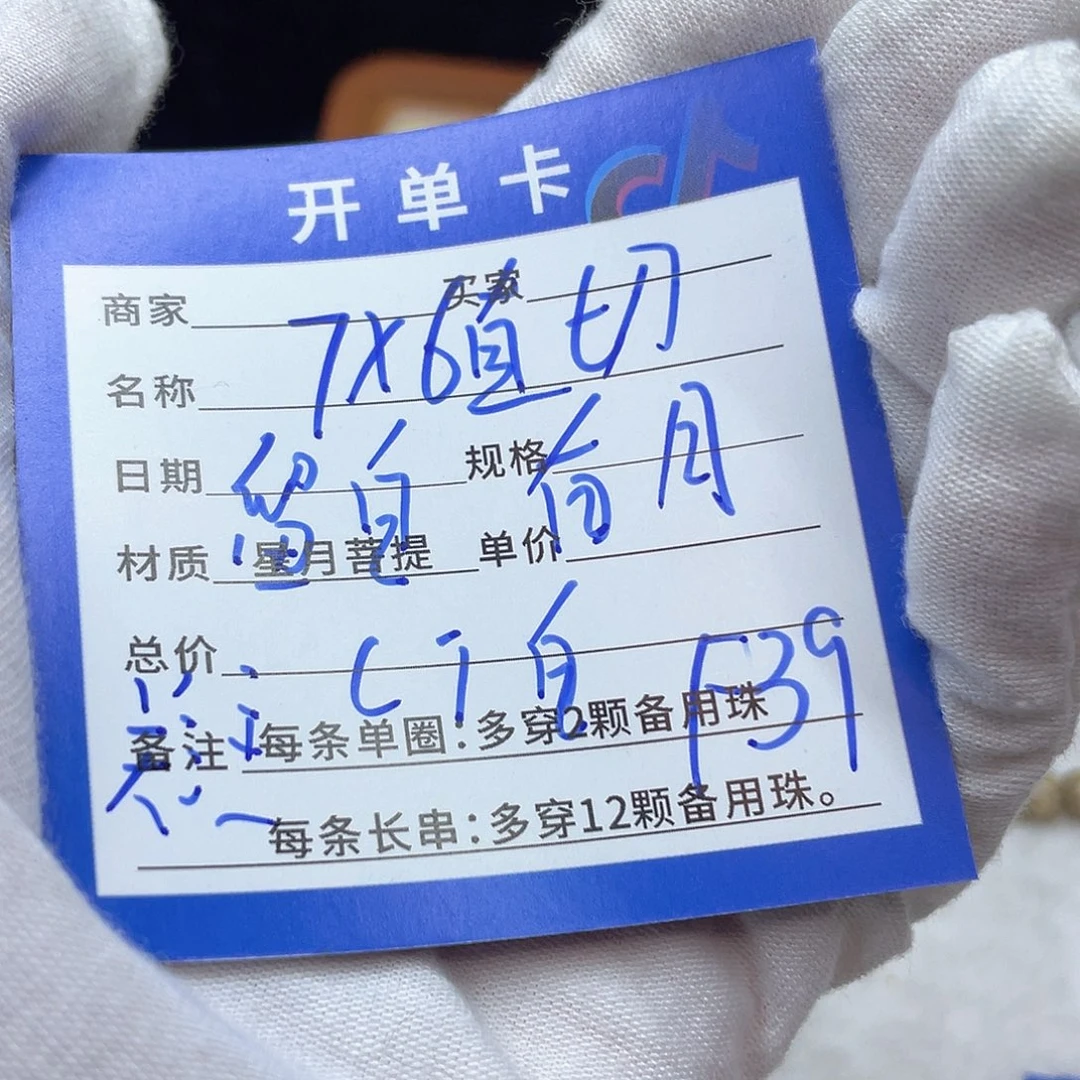 开单卡
商家 买家
7X6值切
名称
日期 规格
留白 有月
材质 星月菩提 单价
总价
白 F39
备注:每条单圈:多穿2颗备用珠
每条长串:多穿12颗备用珠。